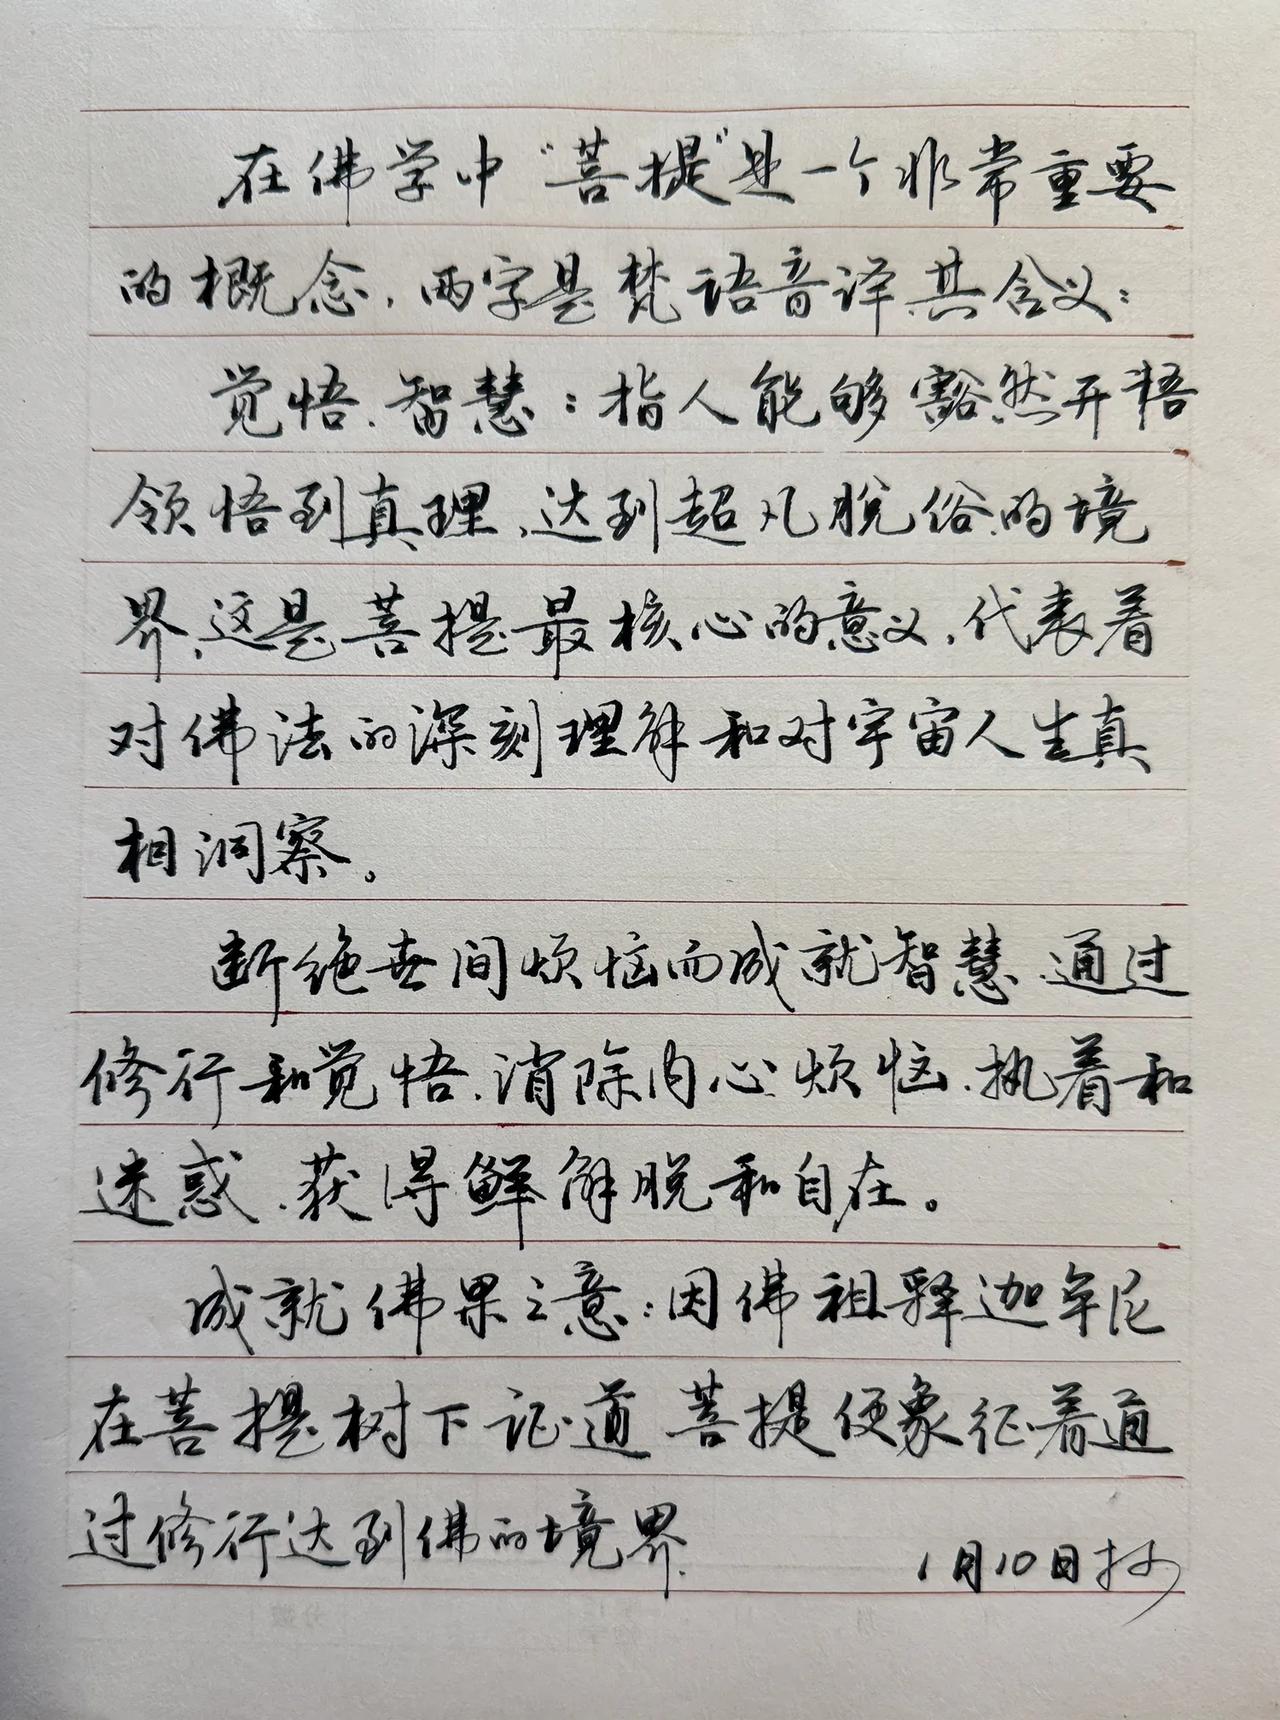 在佛学中“菩提”是一个非常重要
的概念，两字是梵语音译，其含义：
觉悟、智慧：指人能够豁然开悟
领悟到真理，达到超凡脱俗的境
界，这是菩提最核心的意义，代表着
对佛法的深刻理解和对宇宙人生真
相洞察。
断绝世间烦恼而成就智慧，通过
修行和觉悟，消除内心烦恼、执着和
迷惑，获得鲜解脱和自在。
成就佛果之意：因佛祖释迦牟尼
在菩提树下证道，菩提便象征着通
过修行达到佛的境界.
1月10日抄